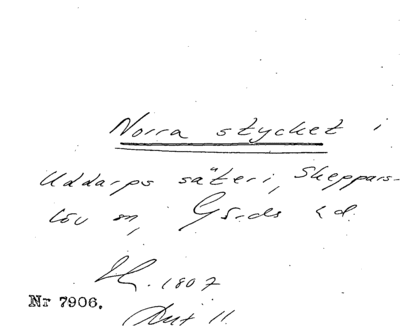 Norra stycket i
Uddarps säteri, Skeppars-
löv sn, Gärds hd.
1807
Nr 7906.